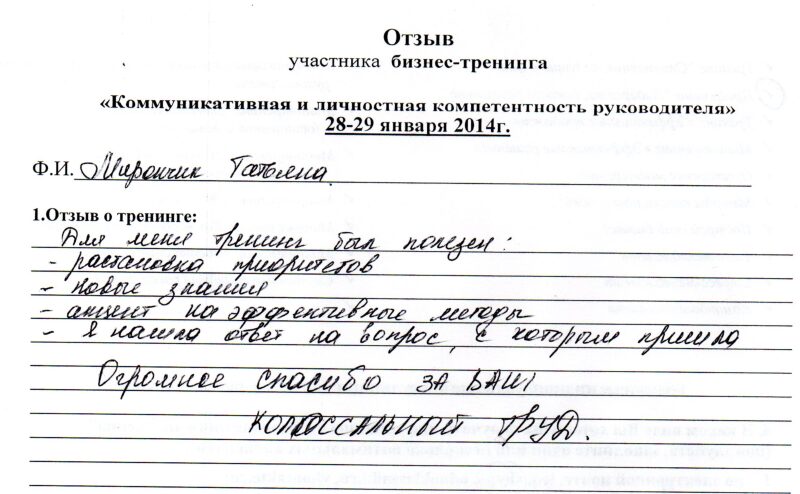 Отзыв
участника бизнес-тренинга
«Коммуникативная и личностная компетентность руководителя»
28-29 января 2014г.
Ф.И. Мирончик Татьяна
1.Отзыв о тренинге:
Для меня тренинг был полезен:
- растановка приоритетов
- новые знания
- акцент на эффективные методы
- Я нашла ответ на вопрос, с которым пришла
Огромное спасибо за ваш
колоссальный труд.